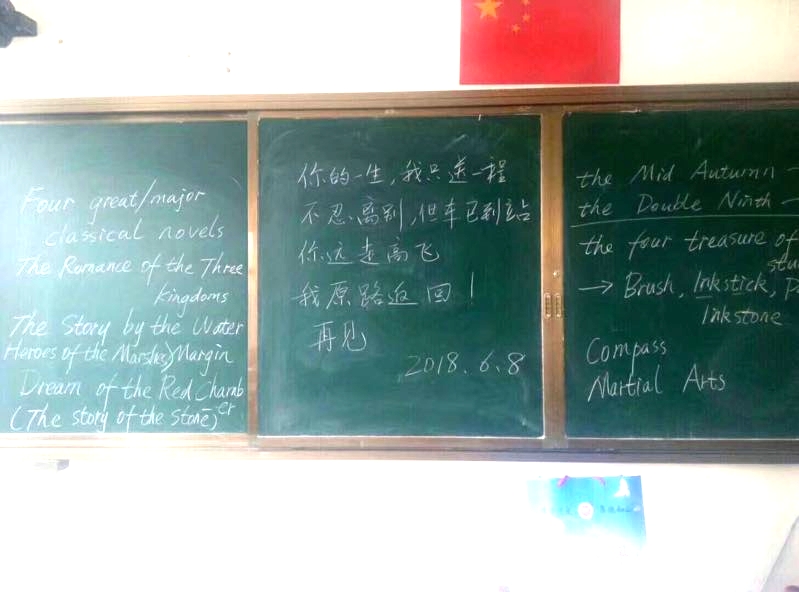 Four great/major
classical novels
The Romance of the Three
Kingdoms
The Story by the Water
Heroes of the Marshes) Margin
Dream of the Red Chamb
er
(The story of the Stone)
你的一生,我只送一程
不忍离别,但车已到站
你远走高飞
我原路返回!
再见
2018.6.8
the Mid Autumn –
the Double Ninth –
the four treasure of
stu
→ Brush, Inkstick, P
Inkstone
Compass
Martial Arts